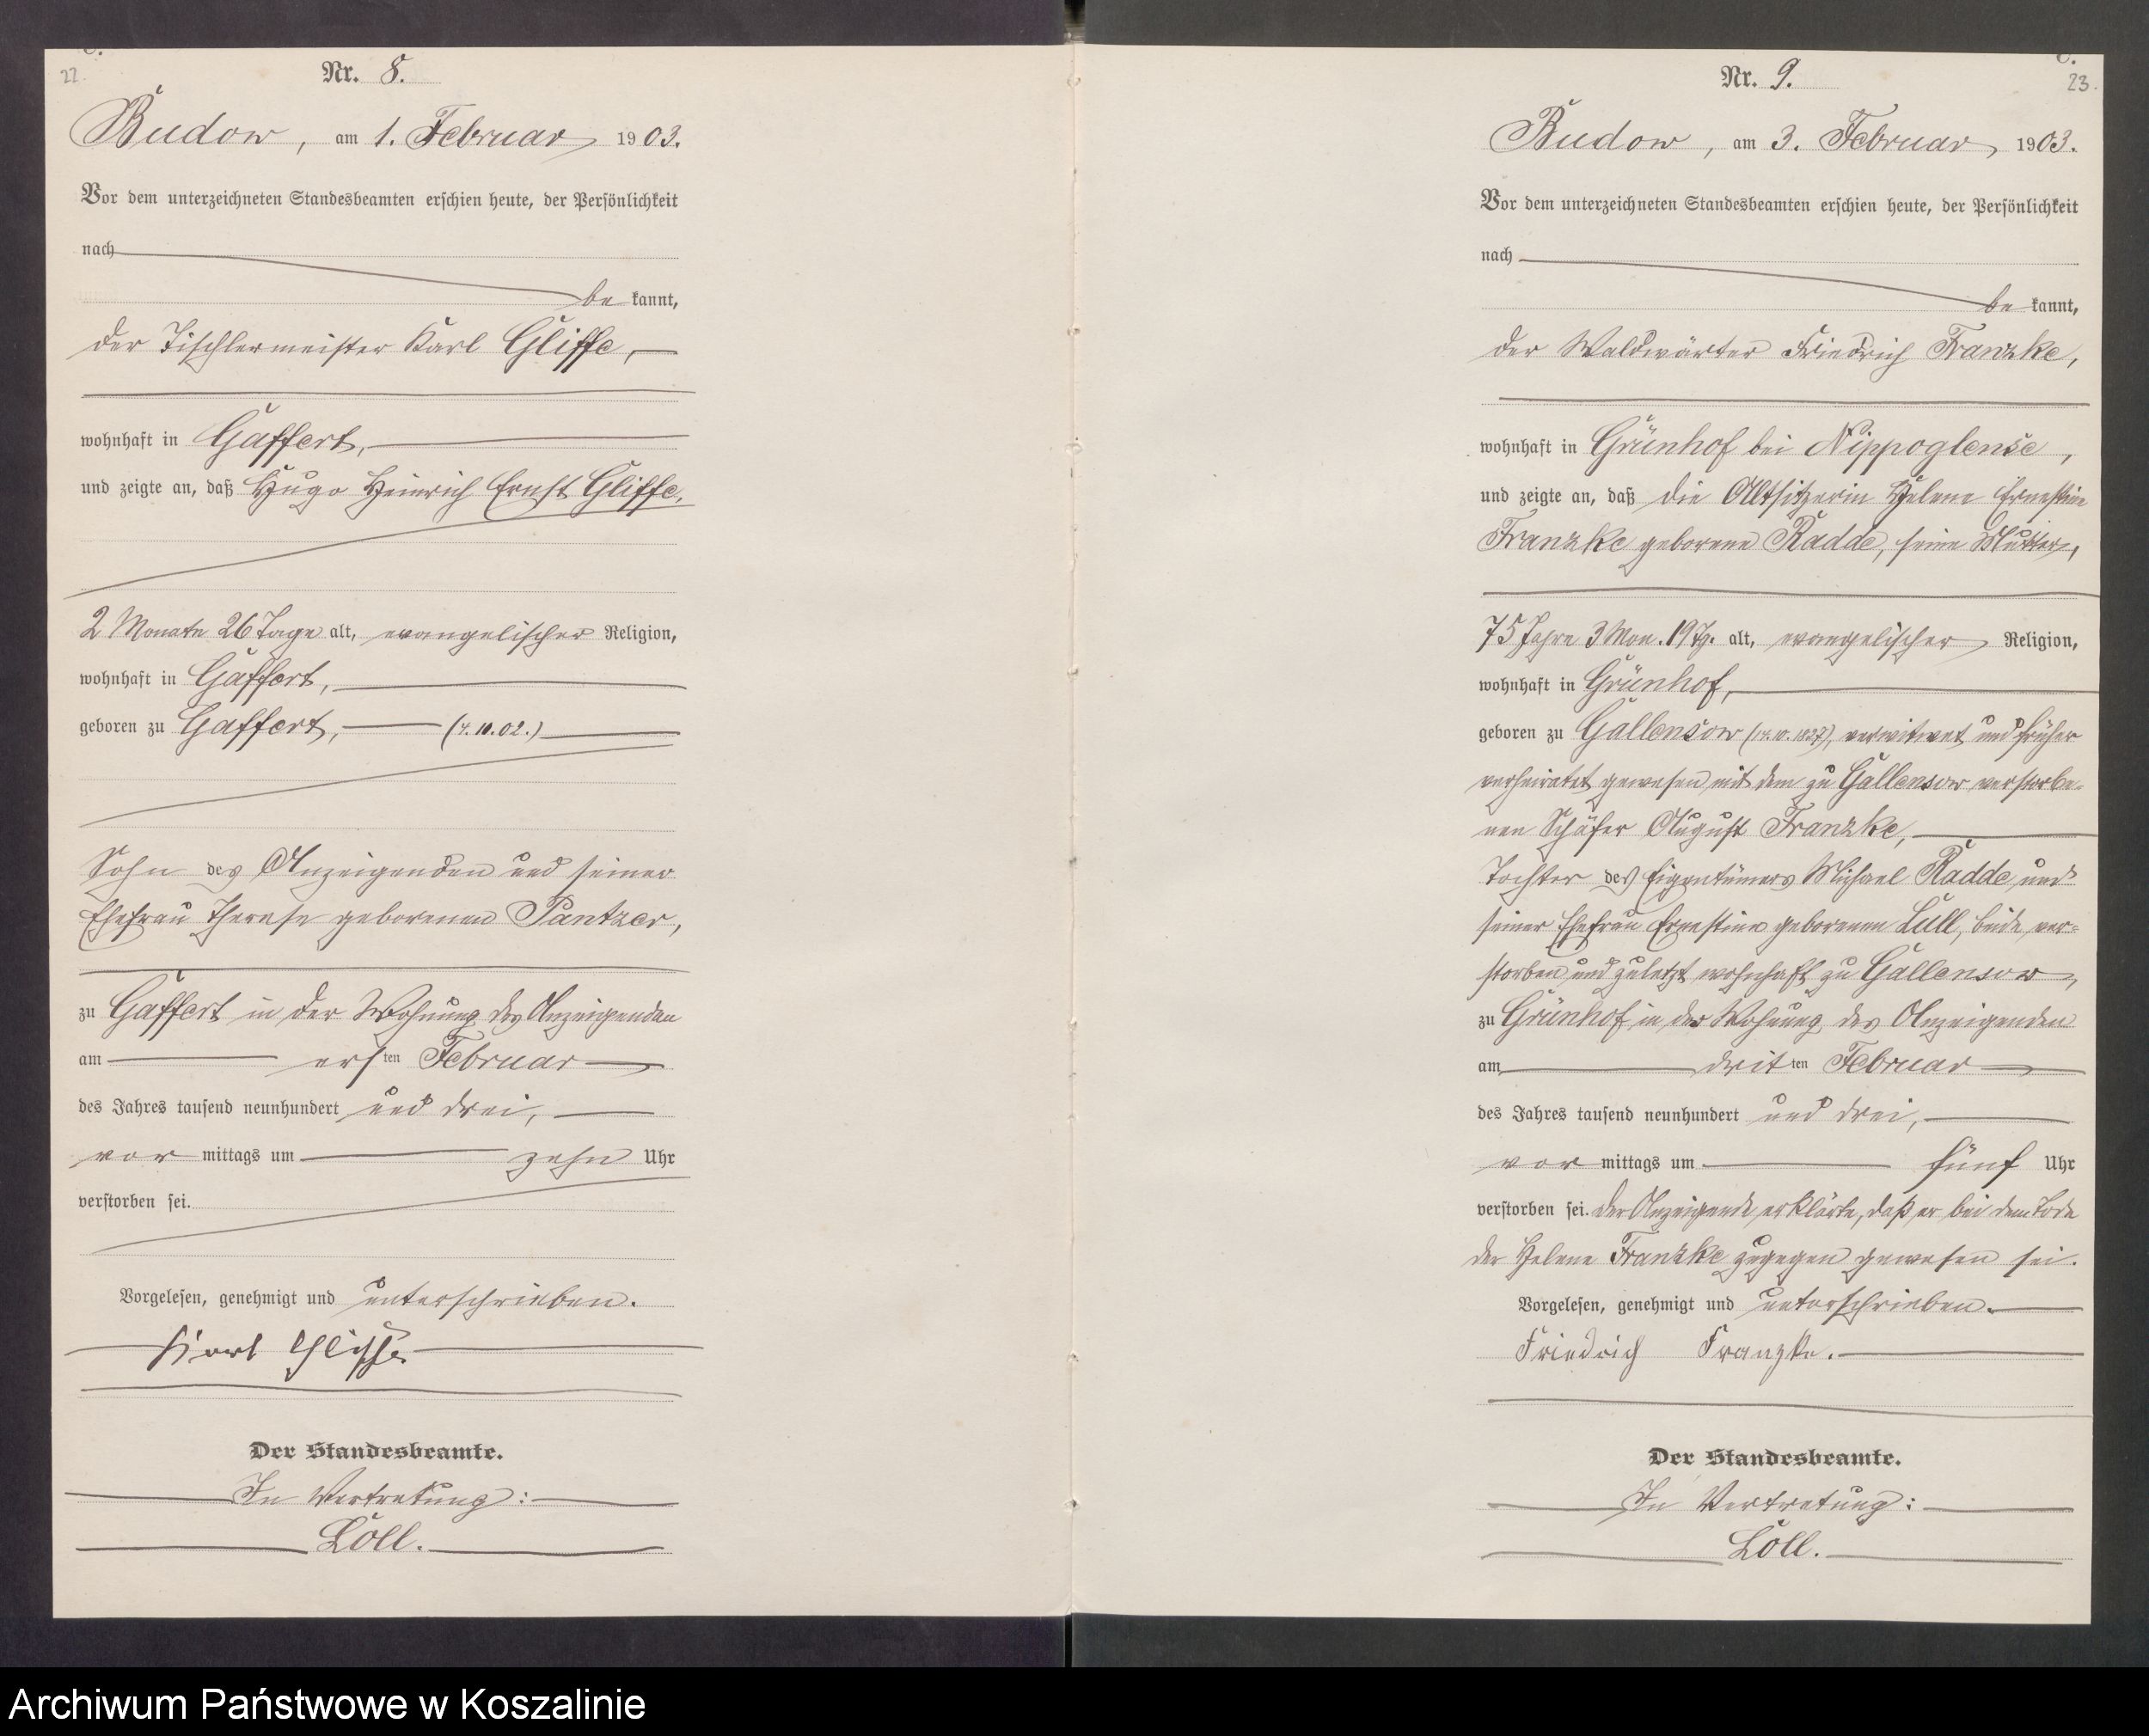 22.
C.
Nr. 8.
Budow, am 1. Februar 1903.
Vor dem unterzeichneten Standesbeamten erschien heute, der Persönlichkeit
nach
be kannt,
der Tischlermeister Karl Gliffe,
wohnhaft in Gaffert,
und zeigte an, daß Hugo Heinrich Ernst Gliffe,
2 Monate 26 Tage alt, evangelischer Religion,
wohnhaft in Gaffert,
geboren zu Gaffert, 02.)
Sohn des Anzeigenden und seiner
Ehefrau Therese geborenen Pantzer,
zu Gaffert in der Wohnung des Anzeigenden
am ersten Februar
des Jahres tausend neunhundert und drei,
vor mittags um zehn Uhr
verstorben sei.
Vorgelesen, genehmigt und unterschrieben.
Karl Gliffe
Der Standesbeamte.
In Vertretung:
Löll.
C.
23.
Nr. 9.
Budow, am 3. Februar 1903.
Vor dem unterzeichneten Standesbeamten erschien heute, der Persönlichkeit
nach
be kannt,
der Waldwärter Friedrich Franzke,
wohnhaft in Grünhof bei Nippoglense,
und zeigte an, daß die Altsitzerin Helene Ernestine
Franzke geborene Radde, seine Mutter,
75 Jahre 3 Mon. 19 Tg. alt, evangelischer Religion,
wohnhaft in Grünhof,
geboren zu Gallensow (14.10.1827), verwitwet und früher
verheiratet gewesen mit dem zu Gallensow verstorbe-
nen Schäfer August Franzke,
Tochter des Eigentümers Michael Radde und
seiner Ehefrau Ernestine geborenen Lull, beide ver-
storben und zuletzt wohnhaft zu Gallensow,
zu Grünhof in der Wohnung des Anzeigenden
am dritten Februar
des Jahres tausend neunhundert und drei,
vor mittags um fünf Uhr
verstorben sei. Der Anzeigende erklärte, daß er bei dem Tode
der Helene Franzke zugegen gewesen sei.
Vorgelesen, genehmigt und unterschrieben.
Friedrich Franzke.
Der Standesbeamte.
In Vertretung:
Löll.
Archiwum Państwowe w Koszalinie